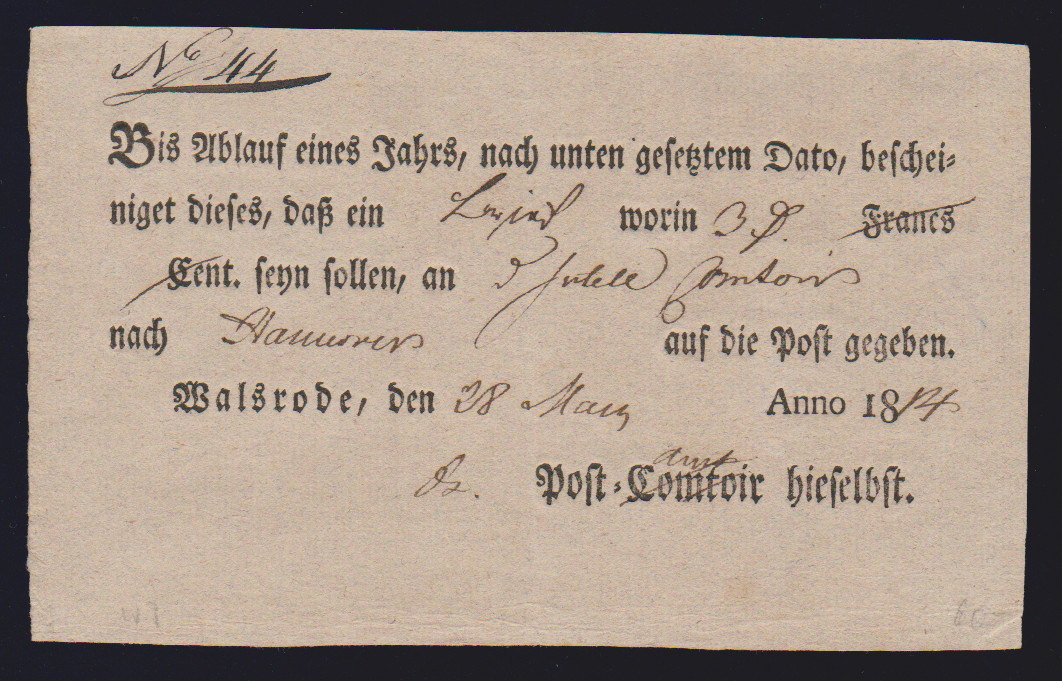 No 44
Bis Ablauf eines Jahrs, nach unten gesetztem Dato, beschei-
niget dieses, daß ein Brief worin 3 Francs
Cent. seyn sollen, an d Comtoir
nach Hannover auf die Post gegeben.
Walsrode, den 28 März Anno 1814
amt
Post-Comtoir hieselbst.